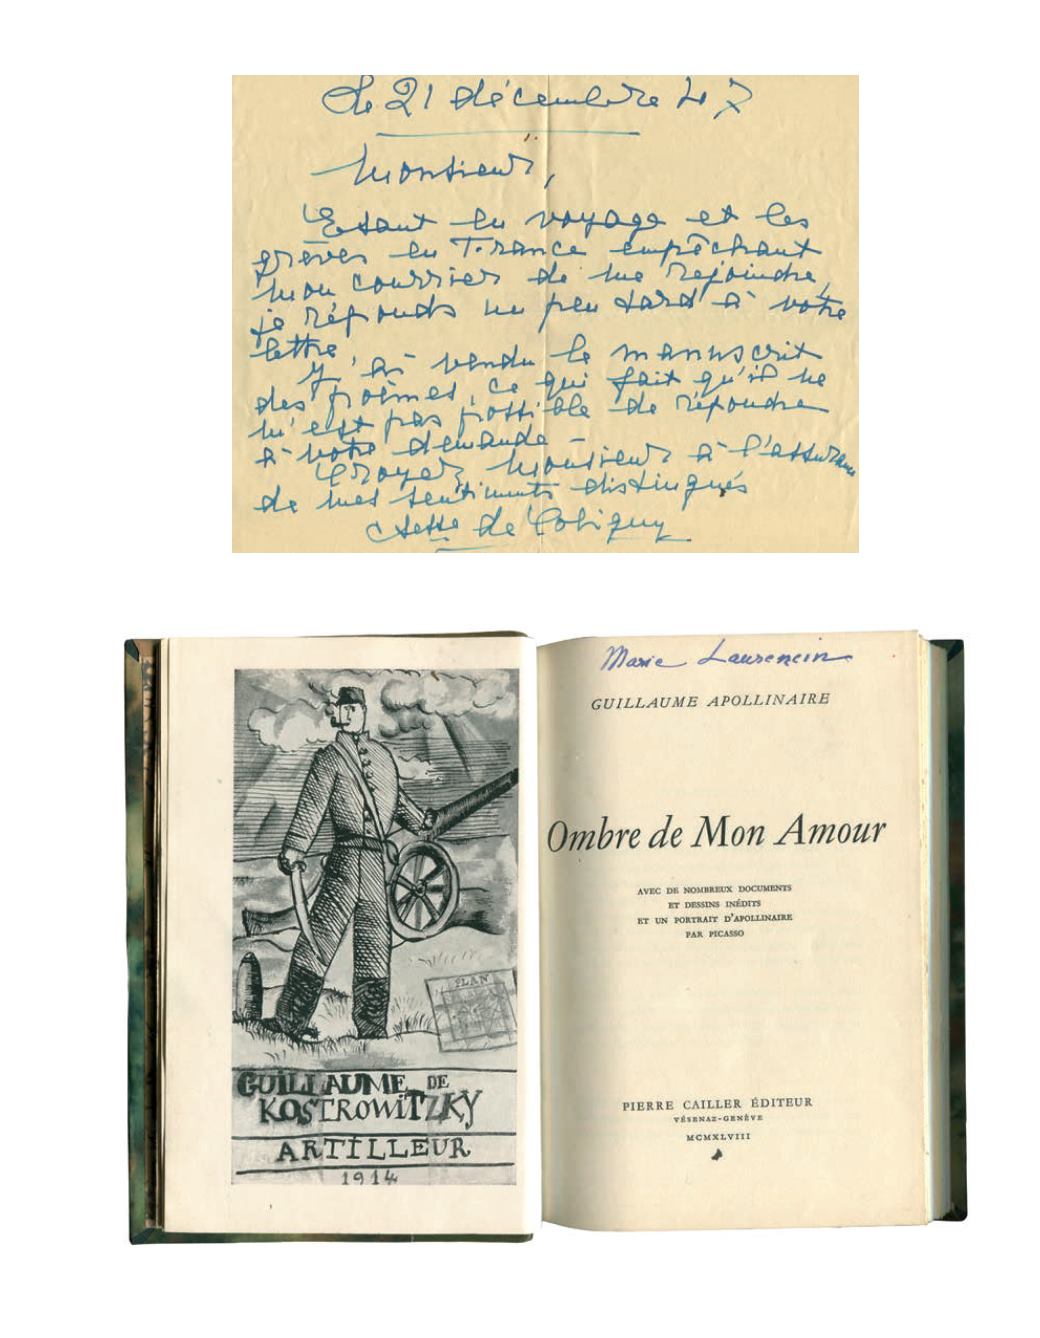 Le 21 décembre 47
Monsieur,
Etant en voyage et les
grèves en France empêchant
mon courrier de me rejoindre,
je réponds un peu tard à votre
lettre.
J'ai vendu le manuscrit
des poèmes, ce qui fait qu'il ne
m'est pas possible de répondre
à votre demande -
Croyez Monsieur à l'assurance
de mes sentiments distingués
Ctesse de Coligny
Marie Laurencin
GUILLAUME APOLLINAIRE
Ombre de Mon Amour
AVEC DE NOMBREUX DOCUMENTS
ET DESSINS INÉDITS
ET UN PORTRAIT D'APOLLINAIRE
PAR PICASSO
PIERRE CAILLER ÉDITEUR
VÉSENAZ-GENÈVE
MCMXLVIII
PLAN
GUILLAUME DE
KOSTROWITZKY
ARTILLEUR
1914